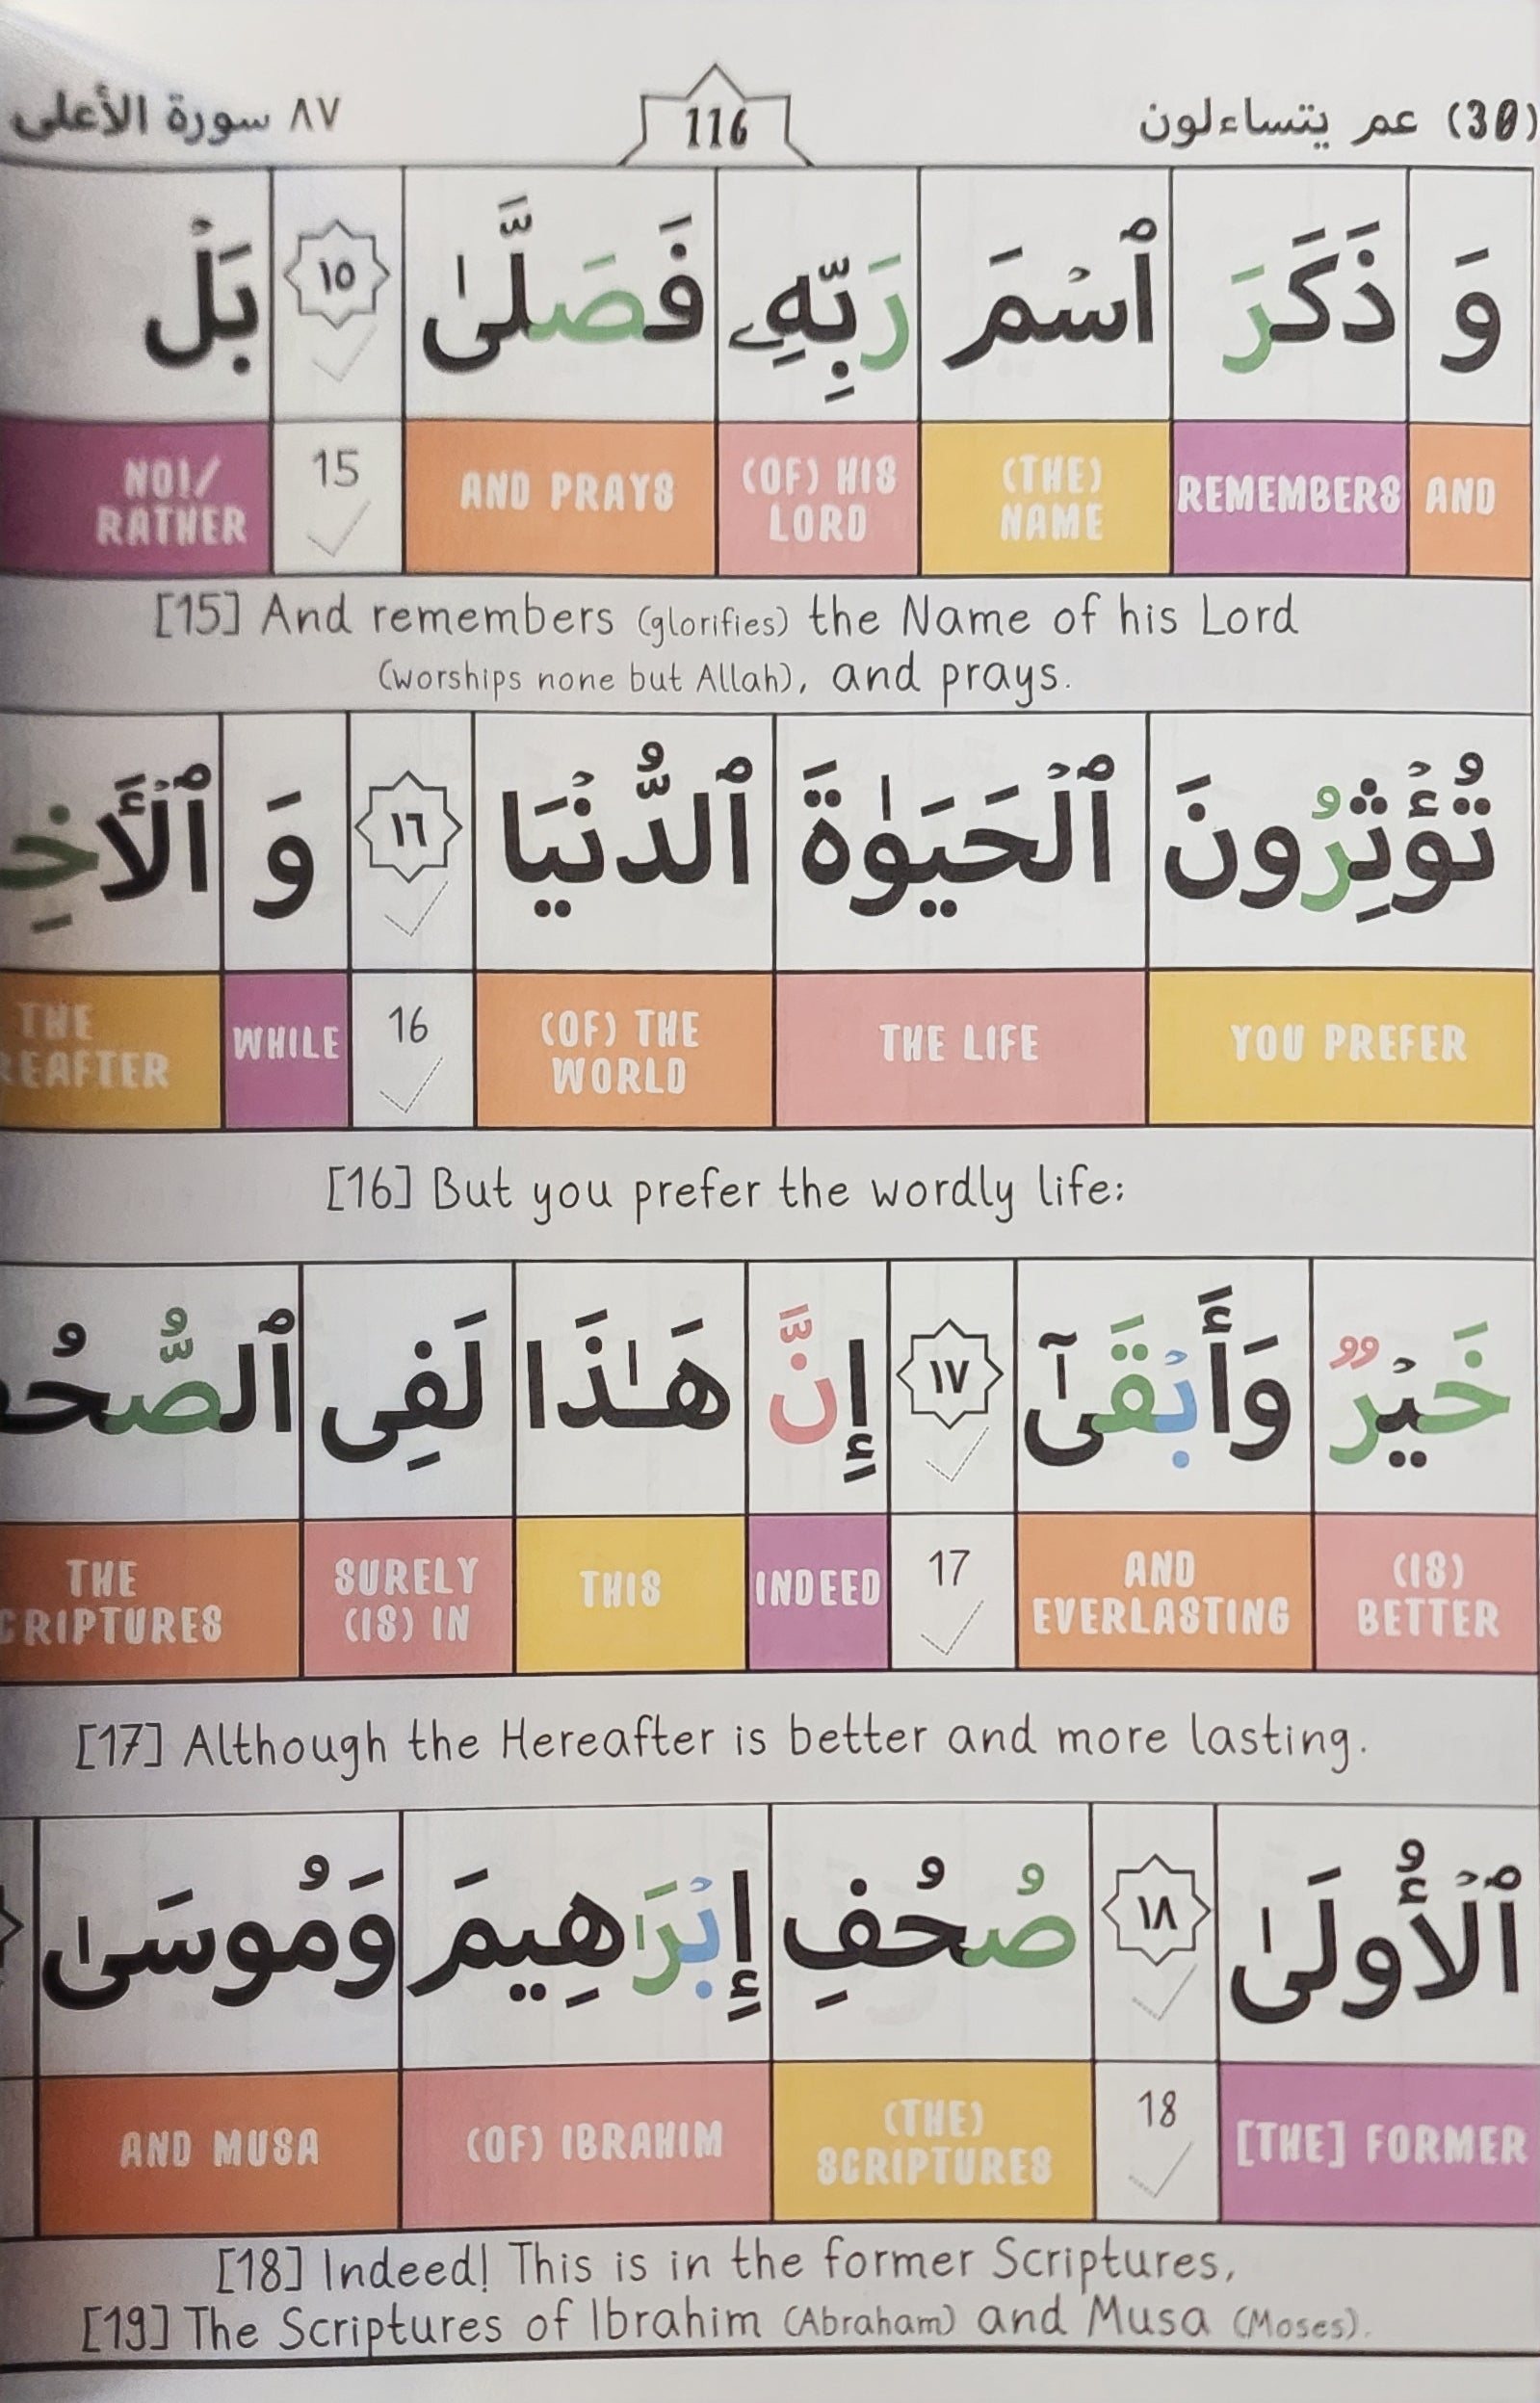 (30) عم يتساءلون 116 ٨٧ سورة الأعلى
وَ ذَكَرَ ٱسۡمَ رَبِّهِۦ فَصَلَّىٰ ١٥ بَلۡ
AND REMEMBERS (THE) NAME (OF) HIS LORD AND PRAYS 15 NO!/ RATHER
[15] And remembers (glorifies) the Name of his Lord
(worships none but Allah), and prays.
تُؤۡثِرُونَ ٱلۡحَيَوٰةَ ٱلدُّنۡيَا ١٦ وَ
YOU PREFER THE LIFE (OF) THE WORLD 16 WHILE THE
[16] But you prefer the wordly life:
خَيۡرٌ وَأَبۡقَىٰٓ ١٧ إِنَّ هَـٰذَا لَفِى
(IS) BETTER AND EVERLASTING 17 INDEED THIS SURELY (IS) IN THE
[17] Although the Hereafter is better and more lasting.
ٱلۡأُولَىٰ ١٨ صُحُفِ إِبۡرَٰهِيمَ وَمُوسَىٰ
[THE] FORMER 18 (THE) SCRIPTURES (OF) IBRAHIM AND MUSA
[18] Indeed! This is in the former Scriptures,
[19] The Scriptures of Ibrahim (Abraham) and Musa (Moses).